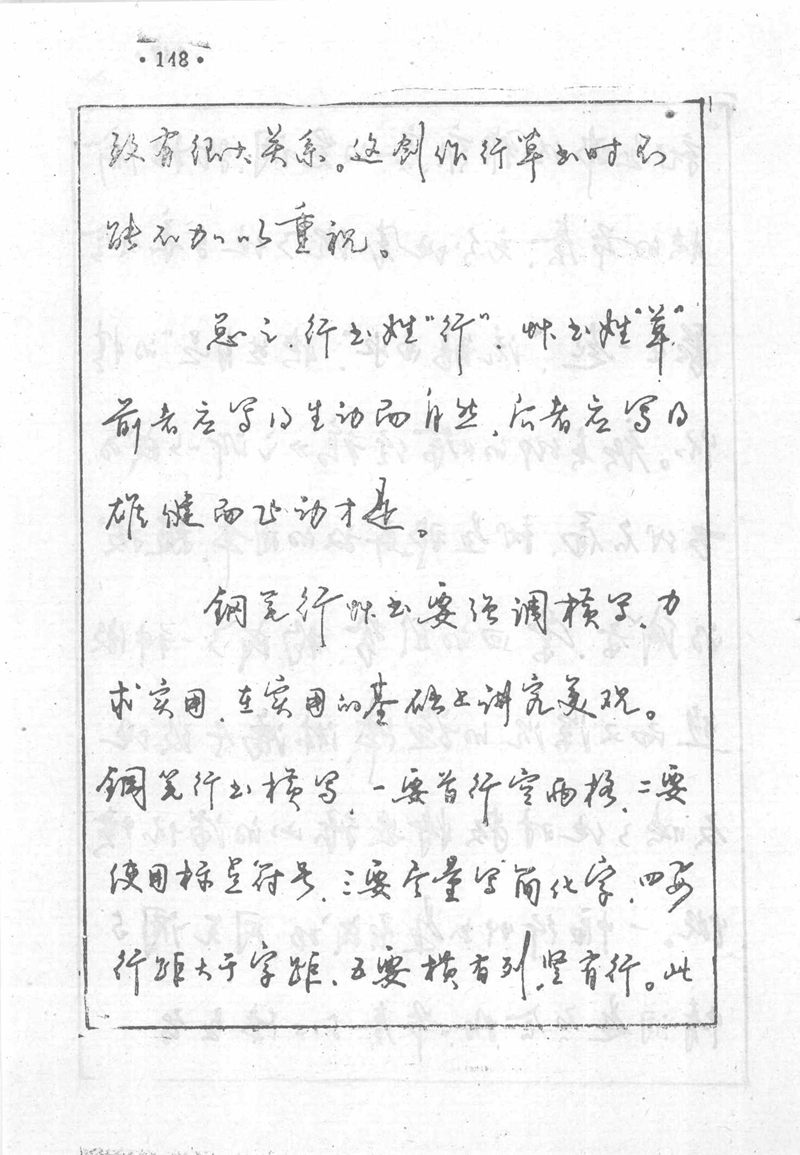 ·148·
致有很大关系。这创作行草书时不
能不加以重视。
总之,行书姓“行”,草书姓“草”
前者应写得生动而自然,后者应写得
雄健而飞动才是。
钢笔行草书要强调横写,力
求实用,在实用的基础上讲究美观。
钢笔行书横写,一要首行空两格,二要
使用标点符号,三要尽量写简化字,四要
行距大于字距,五要横有列,竖有行。此